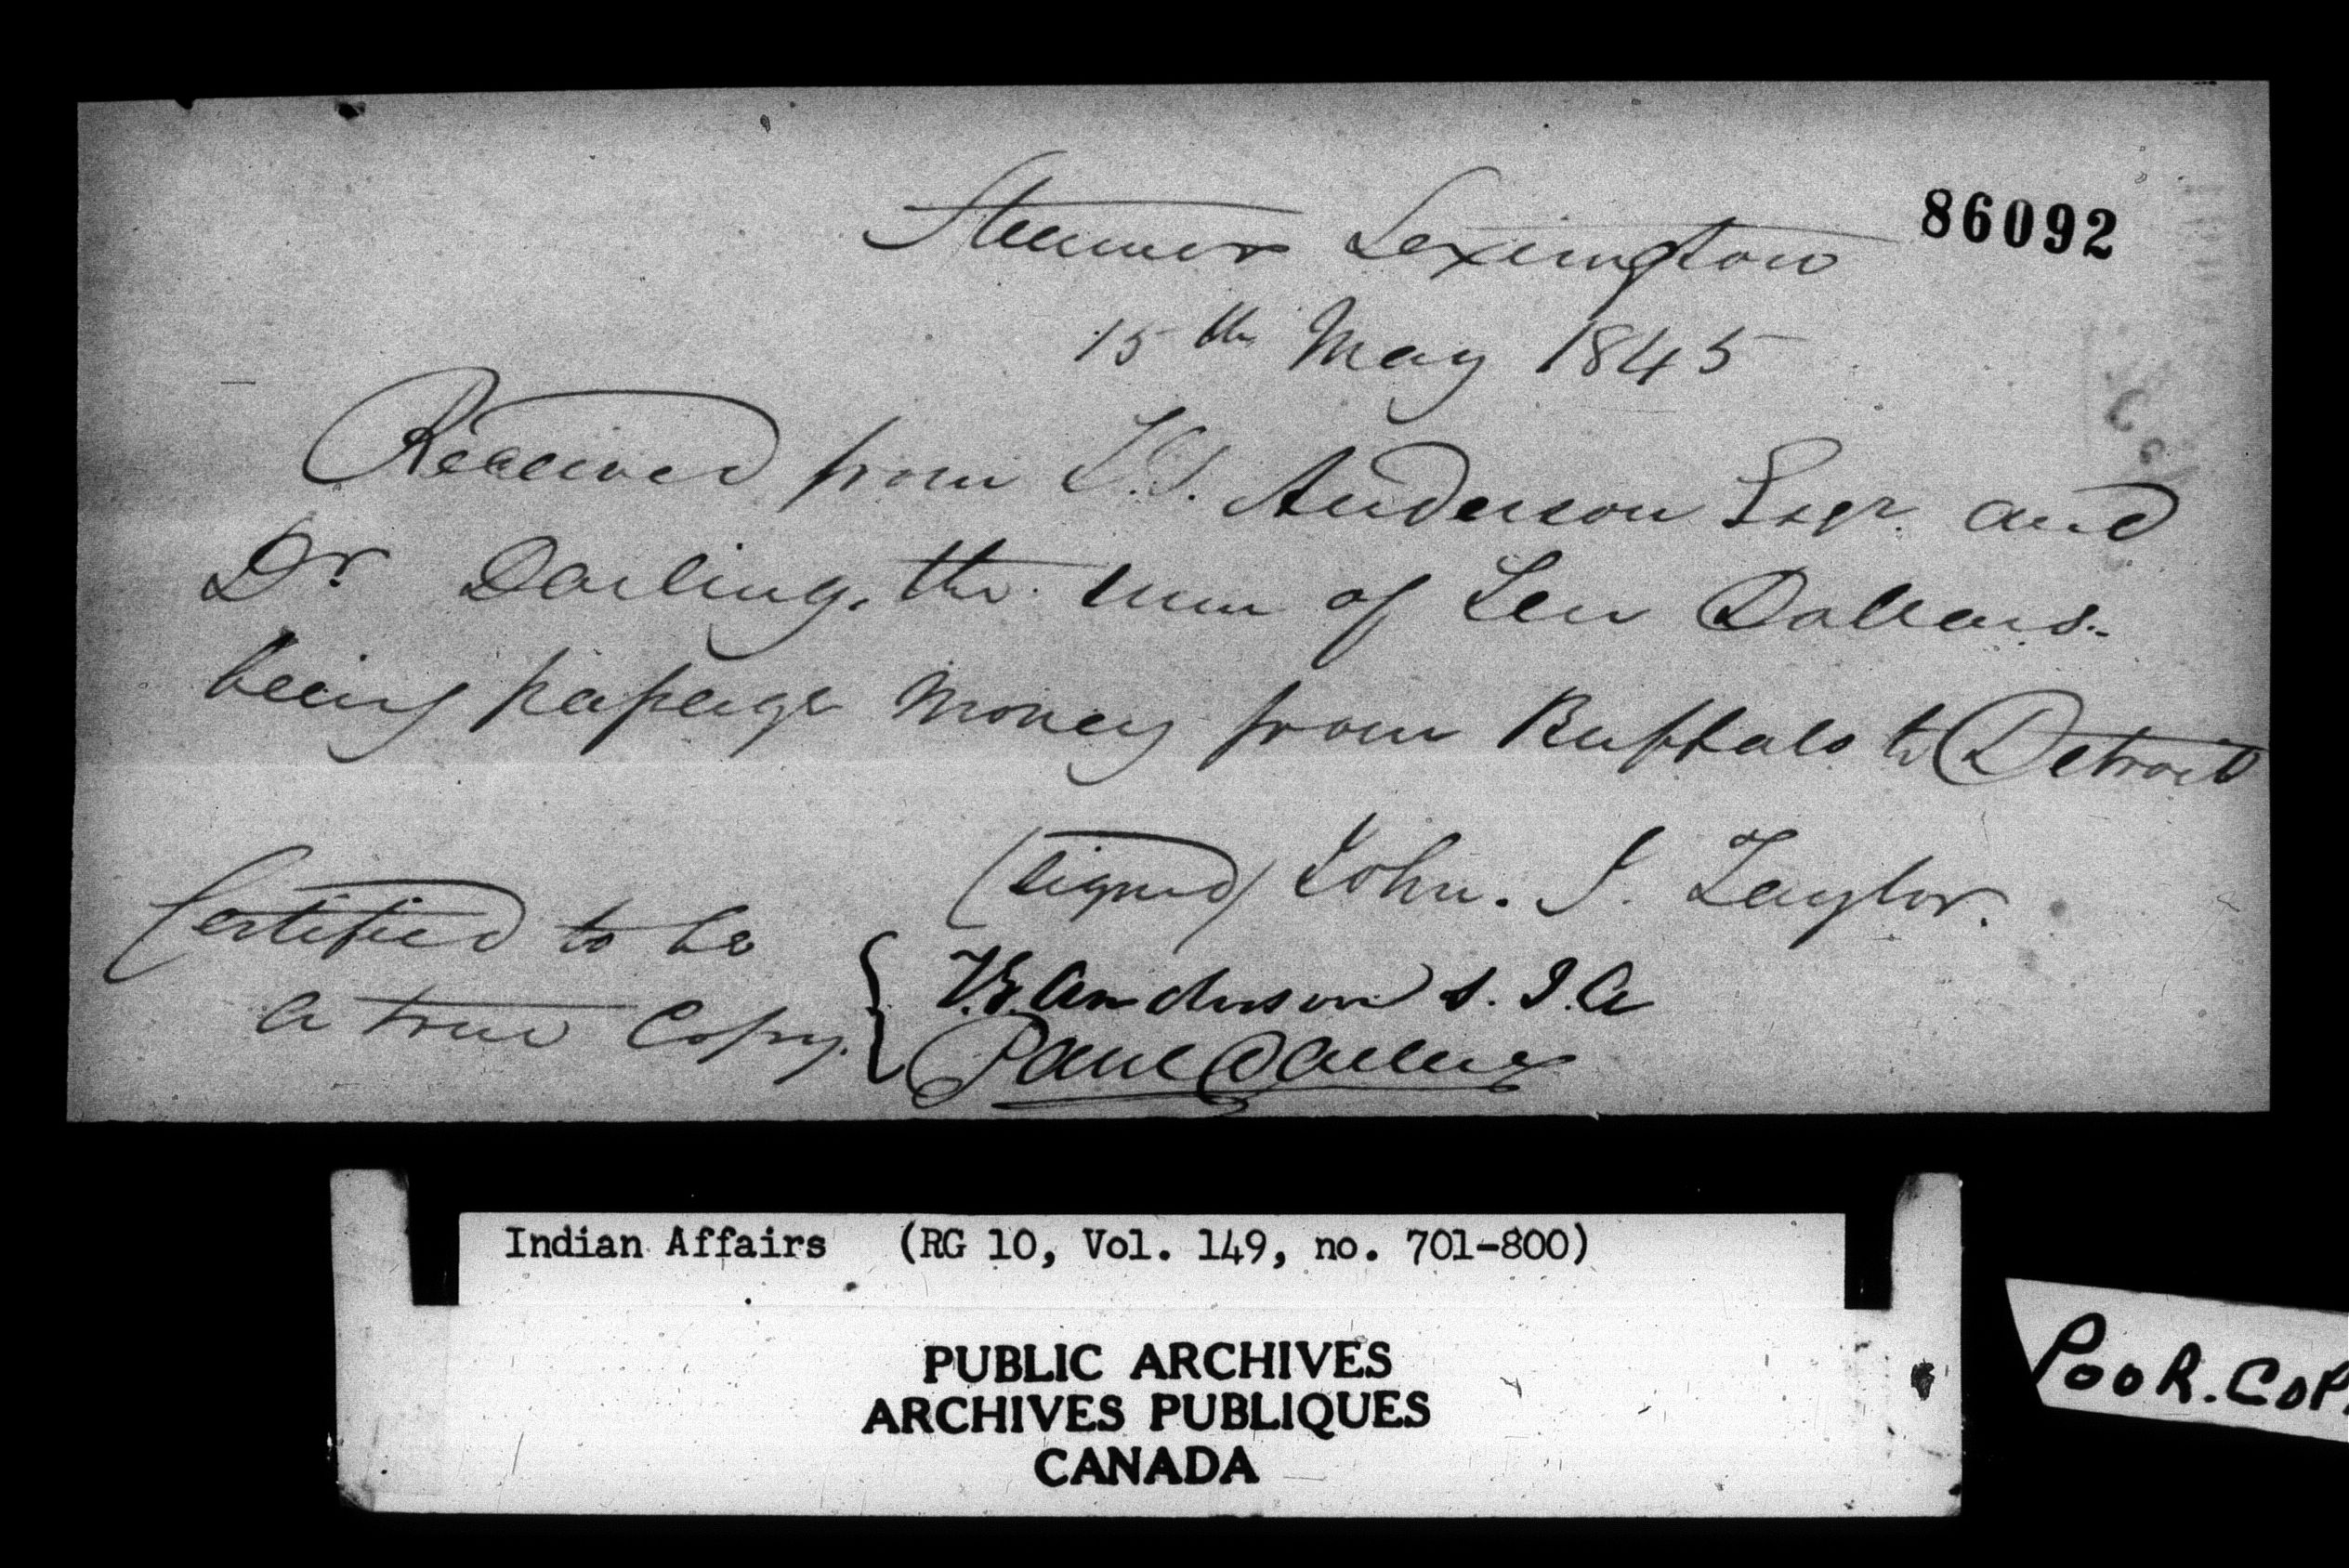 86092
Steamer Lexington
15th May 1845
Received from T.G. Anderson Esqr and
Dr Darling, the sum of Ten Dollars
being passage money from Buffalo to Detroit
(signed) John. J. Taylor.
Certified to be
a true Copy.
T.G. Anderson S.I.A
Paul Darling
Indian Affairs (RG 10, Vol. 149, no. 701-800)
PUBLIC ARCHIVES
ARCHIVES PUBLIQUES
CANADA
POOR.COP